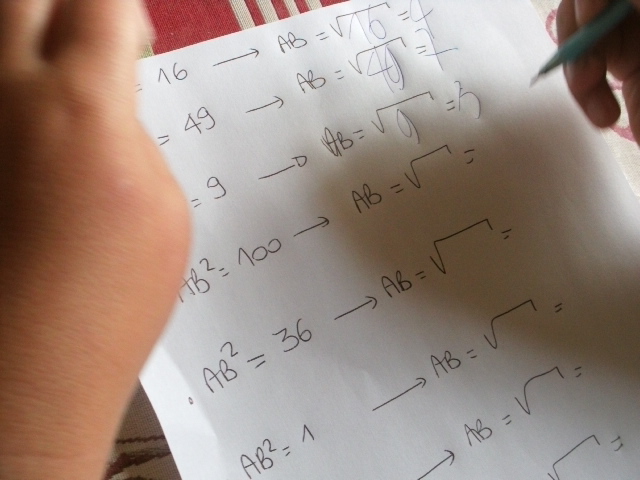 = 16 → AB = √16 = 4
= 49 → AB = √49 = 7
= 9 → AB = √9 = 3
AB² = 100 → AB = √ =
. AB² = 36 → AB = √ =
AB² = 1 → AB = √ =
→ AB = √ =
√ =